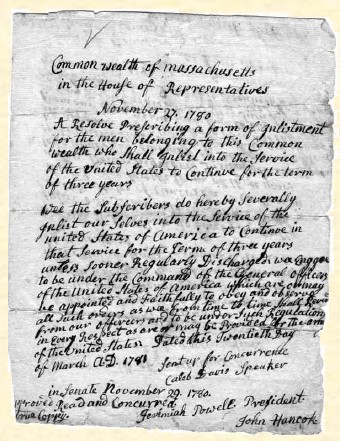 Common wealth of massachusetts
in the House of Representatives
November 27. 1780
A Resolve Prescribing a form of Inlistment
for the men belonging to this Common
Wealth who Shall Inlist into the Service
of the United States to Continue for the term
of three years
Wee the Subscribers do hereby Severally
Inlist our Selves into the Service of the
united States of America to Continue in
that Service for the Term of three years
unless Sooner Regularly Discharged wa Engage
to be under the Command of the General officers
of the United States of America which are or may
be appointed and Faithfully to obey and observe
all Such orders as wa From time to time Shall Receive
From our officers and to be under Such Regulations
in Every Respect as are or may be Provided for the army
of the United States Dated this Twentieth Day
of March A.D. 1781
Sent up for Concurrence
Caleb Davis Speaker
in Senate November 29. 1780.
Read and Concurred
Jeremiah Powell President
True Copy.
John Hancok